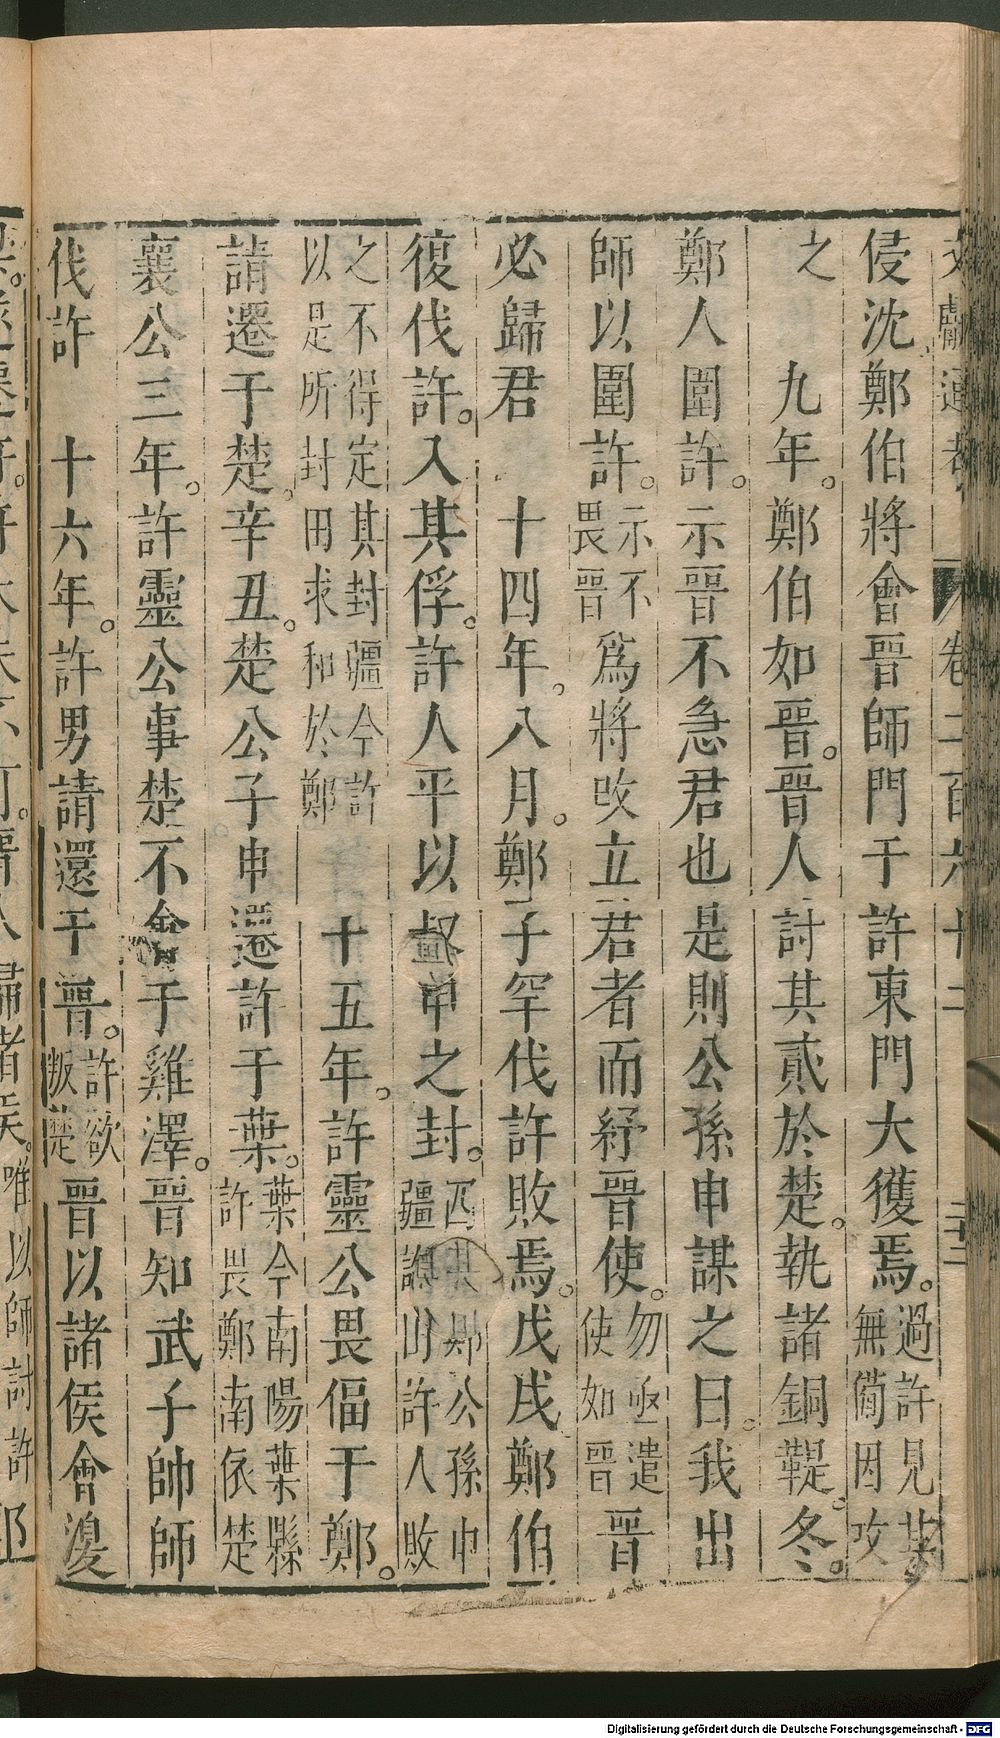 文獻通考　卷二百六十二
侵沈鄭伯將會晉師門于許東門大獲焉。過許見其無備因攻
之　九年。鄭伯如晉。晉人討其貳於楚。執諸銅鞮。冬。
鄭人圍許。示晉不急君也是則公孫申謀之曰。我出
師以圍許。示不畏晉爲將改立君者而紓晉使。勿亟遣使如晉晉
必歸君　十四年。八月。鄭子罕伐許敗焉。戊戌鄭伯
復伐許。入其俘。許人平以叔申之封。公孫申疆許人敗
之不得定其封疆今許以是所封田求和於鄭　十五年。許靈公畏偪于鄭。
請遷于楚。辛丑。楚公子申遷許于葉。葉今南陽葉縣許畏鄭南依楚
襄公三年。許靈公事楚不會于雞澤。晉知武子帥師
伐許　十六年。許男請還于晉。許欲叛楚晉以諸侯會溴
歸諸侯。唯以師討許
Digitalisierung gefördert durch die Deutsche Forschungsgemeinschaft - DFG